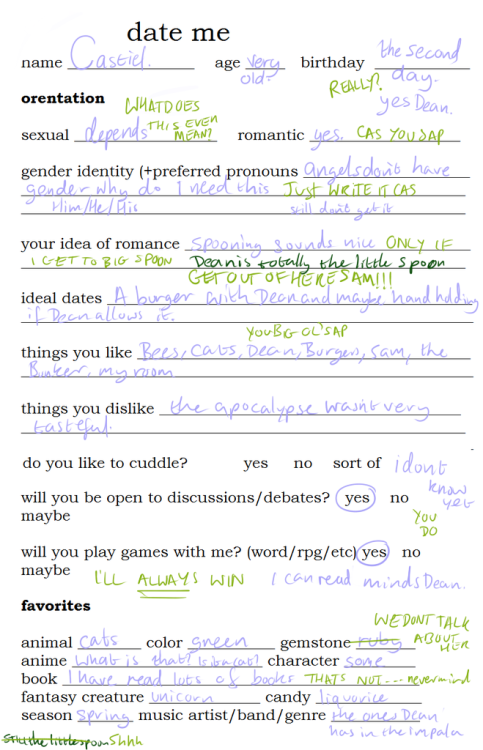 date me
name Castiel. age Very old? birthday the second day.
REALLY?
yes Dean.
orentation
WHAT DOES THIS EVEN MEAN?
sexual depends romantic yes. CAS YOU SAP
gender identity (+preferred pronouns angels don't have
gender why do I need this JUST WRITE IT CAS
Him/He/His still don't get it
your idea of romance Spooning sounds nice ONLY IF
I GET TO BIG SPOON Dean is totally the little spoon
GET OUT OF HERE SAM!!!
ideal dates A burger with Dean and maybe hand holding
if Dean allows it.
YOU BIG OL' SAP
things you like Bees, Cats, Dean, Burgers, Sam, the
Bunker, my room
things you dislike the apocalypse wasn't very
tasteful.
do you like to cuddle? yes no sort of i dont
know yet
will you be open to discussions/debates? yes no
maybe
YOU DO
will you play games with me? (word/rpg/etc) yes no
maybe
I'LL ALWAYS WIN I can read minds Dean.
favorites
WE DONT TALK ABOUT HER
animal Cats color green gemstone ruby
anime What is that? Is it a cat? character some
book I have read lots of books THATS NOT --- nevermind
fantasy creature unicorn candy liquorice
season Spring music artist/band/genre the ones Dean
has in the impala
still the little spoon Shhh